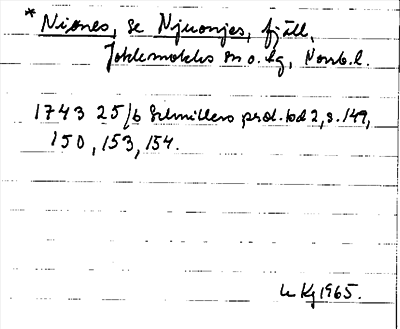 * Niones, se Njuonjes, fjäll,
Jokkmokks sn o. lg, Norrb. l.
1743 25/6 Schnitlers prot. bd 2, s. 149,
150, 153, 154.
Kg 1965.